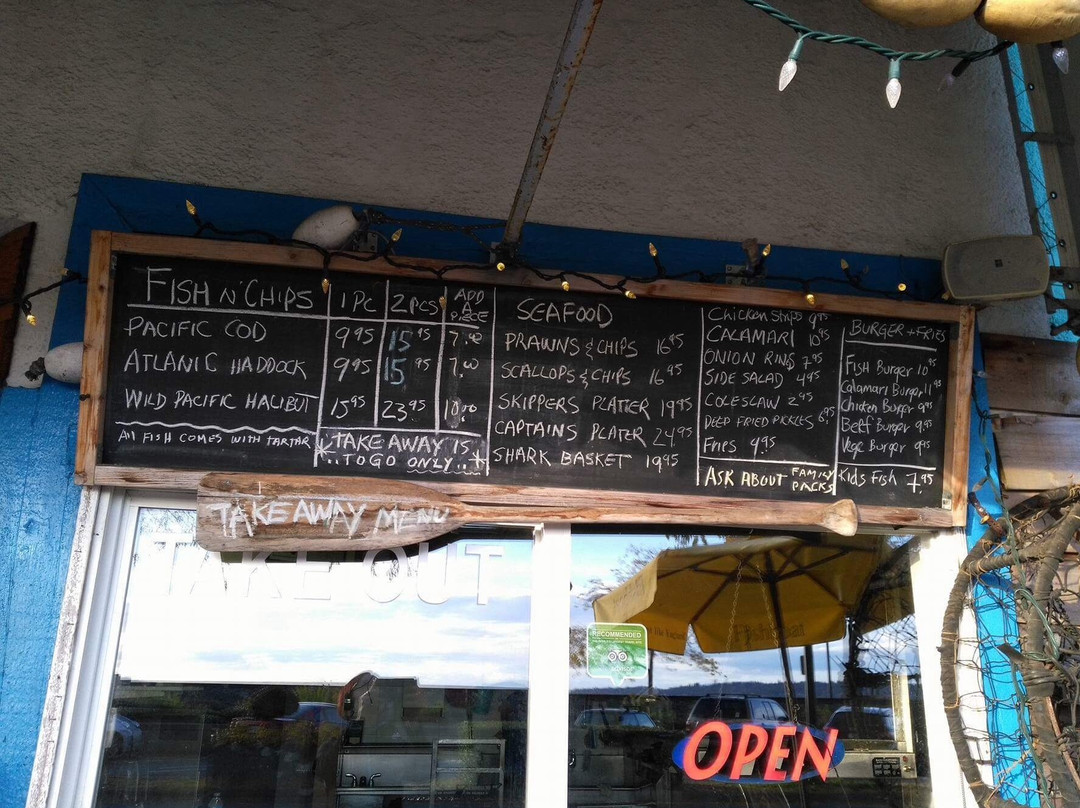 FISH N' CHIPS 1 PC 2 PCS ADD A PIECE
PACIFIC COD 9.95 15.95 7.00
ATLANIC HADDOCK 9.95 15.95 7.00
WILD PACIFIC HALIBUT 15.95 23.95 10.00
All FISH COMES WITH TARTAR
TAKE AWAY IS
..TO GO ONLY..
SEAFOOD
PRAWNS & CHIPS 16.95
SCALLOPS & CHIPS 16.95
SKIPPERS PLATTER 19.95
CAPTAINS PLATER 24.95
SHARK BASKET 19.95
Chicken Strips 9.95
CALAMARI 10.95
ONION RING 7.95
SIDE SALAD 4.95
COLESLAW 2.95
DEEP FRIED PICKLES 6.95
Fries 4.95
ASK ABOUT FAMILY PACKS
BURGER + FRIES
Fish Burger 10.95
Calamari Burger 11.95
Chicken Burger 9.95
Beef Burger 9.95
Vege Burger 9.95
Kids Fish 7.95
TAKE AWAY MENU
TAKE OUT
RECOMMENDED
OPEN